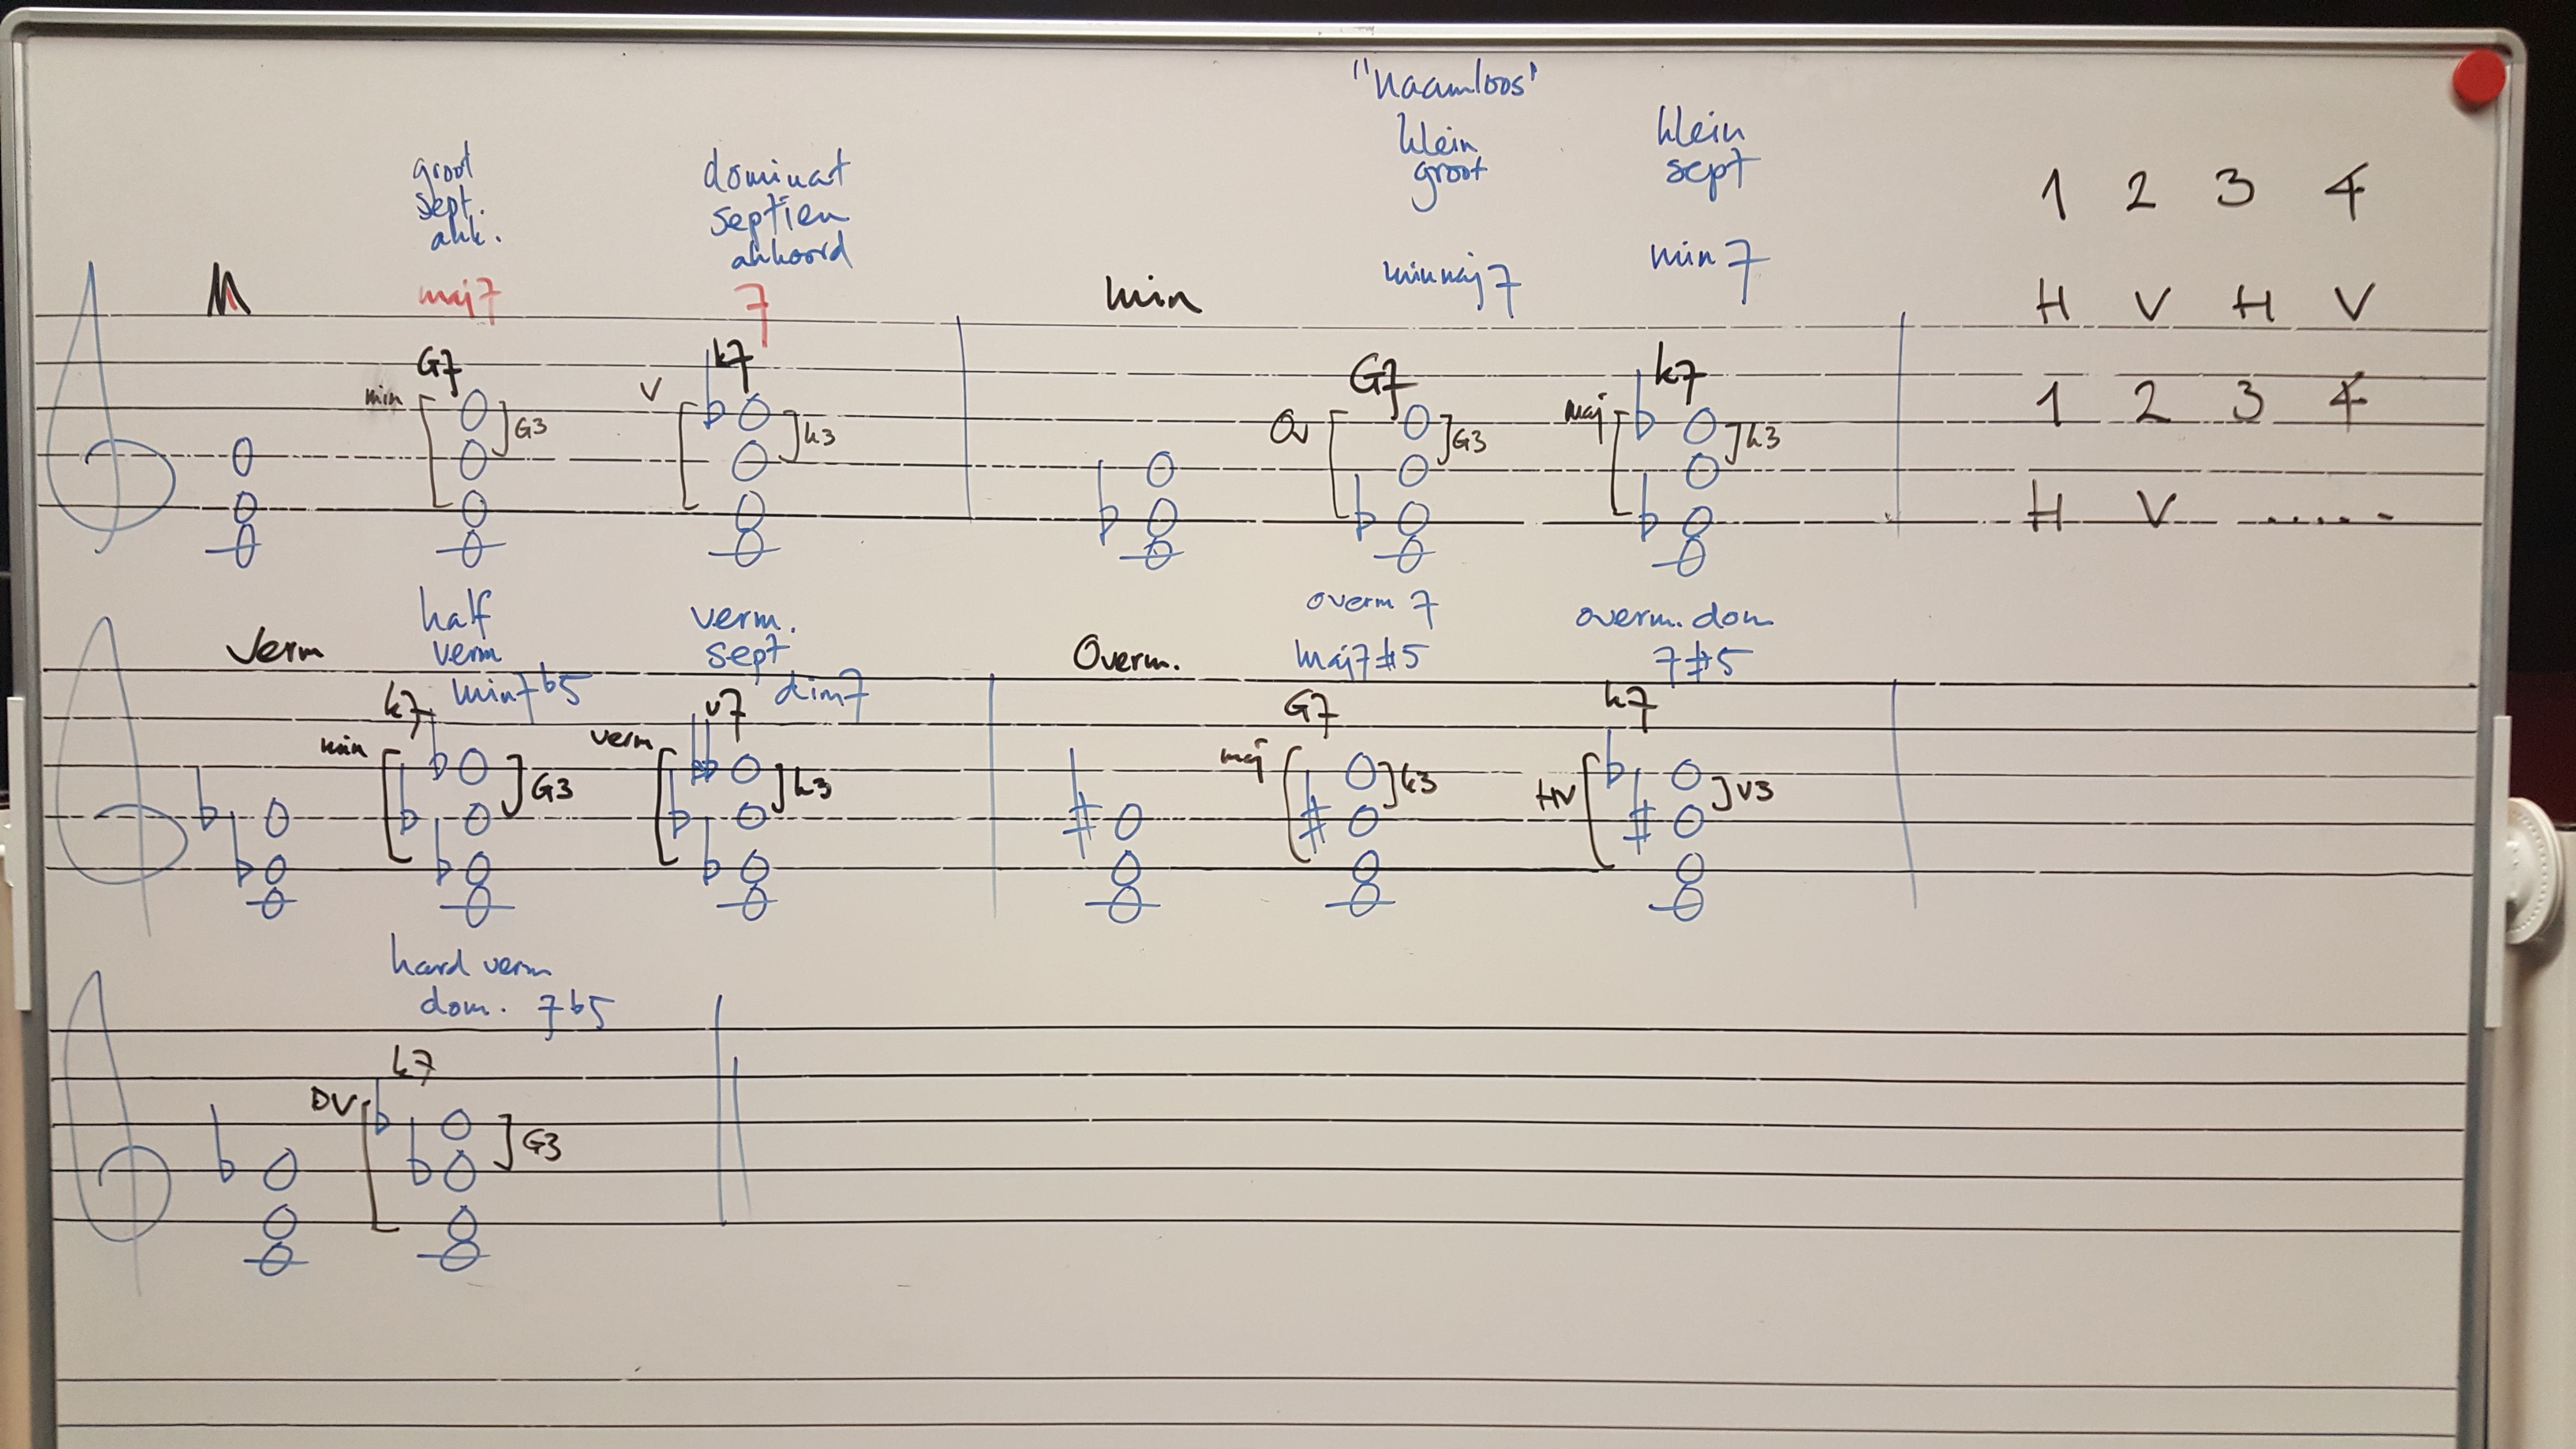 "naamloos"
groot
sept.
akk.
dominat
septien
akkoord
klein
groot
klein
sept
1 2 3 4
M
maj7
7
min
minmaj7
min7
H V H V
G7
k7
G7
k7
min
G3
V
k3
Ov
G3
maj
k3
1 2 3 4
H V ......
Verm
half
verm
min7b5
verm.
sept
dim7
Overm.
overm 7
maj7#5
overm. dom
7#5
k7
v7
G7
k7
min
G3
verm
k3
maj
k3
HV
v3
hard verm
dom. 7b5
k7
DV
G3